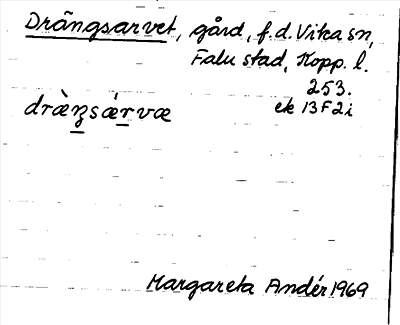 Drängsarvet, gård, f.d. Vika sn,
Falu stad, Kopp. l.
253.
ek 13F2i
dràŋsárvæ
Margareta Andér 1969